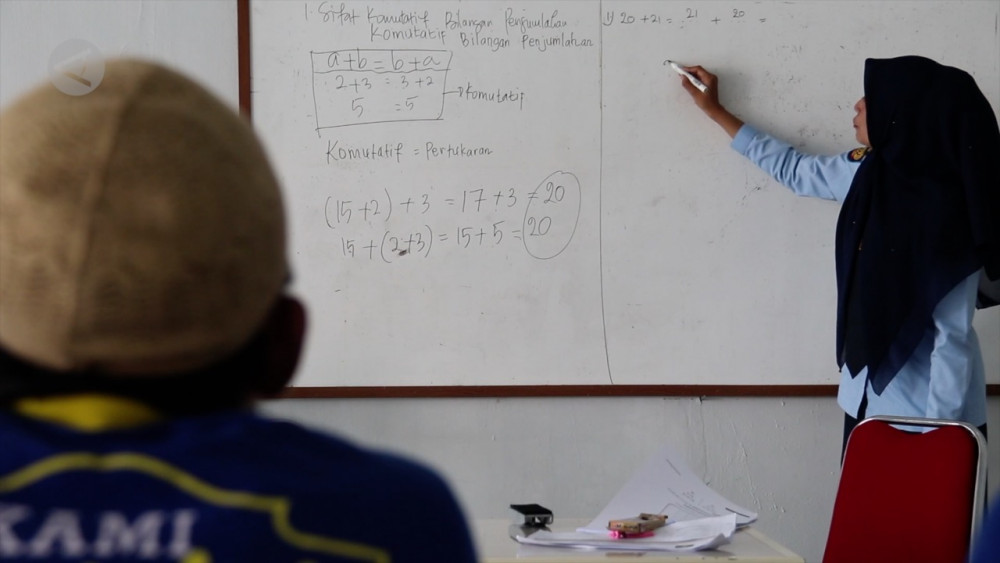 1. Sifat Komutatif Bilangan Penjumlahan
Komutatif Bilangan Penjumlahan
a+b = b+a
2+3 = 3+2
5 = 5
Komutatif
Komutatif = Pertukaran
(15+2) + 3 = 17 + 3 = 20
15 + (2+3) = 15 + 5 = 20
1) 20 + 21 = 21 + 20 =
KAMI